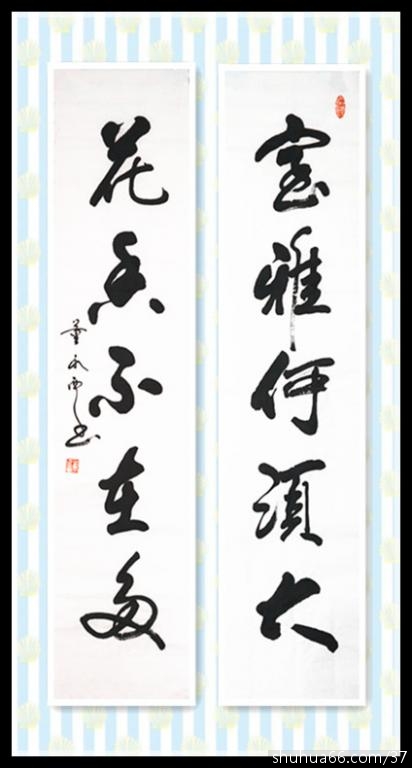 室雅何須大
花香不在多
董永西书
shuhua66.com/57